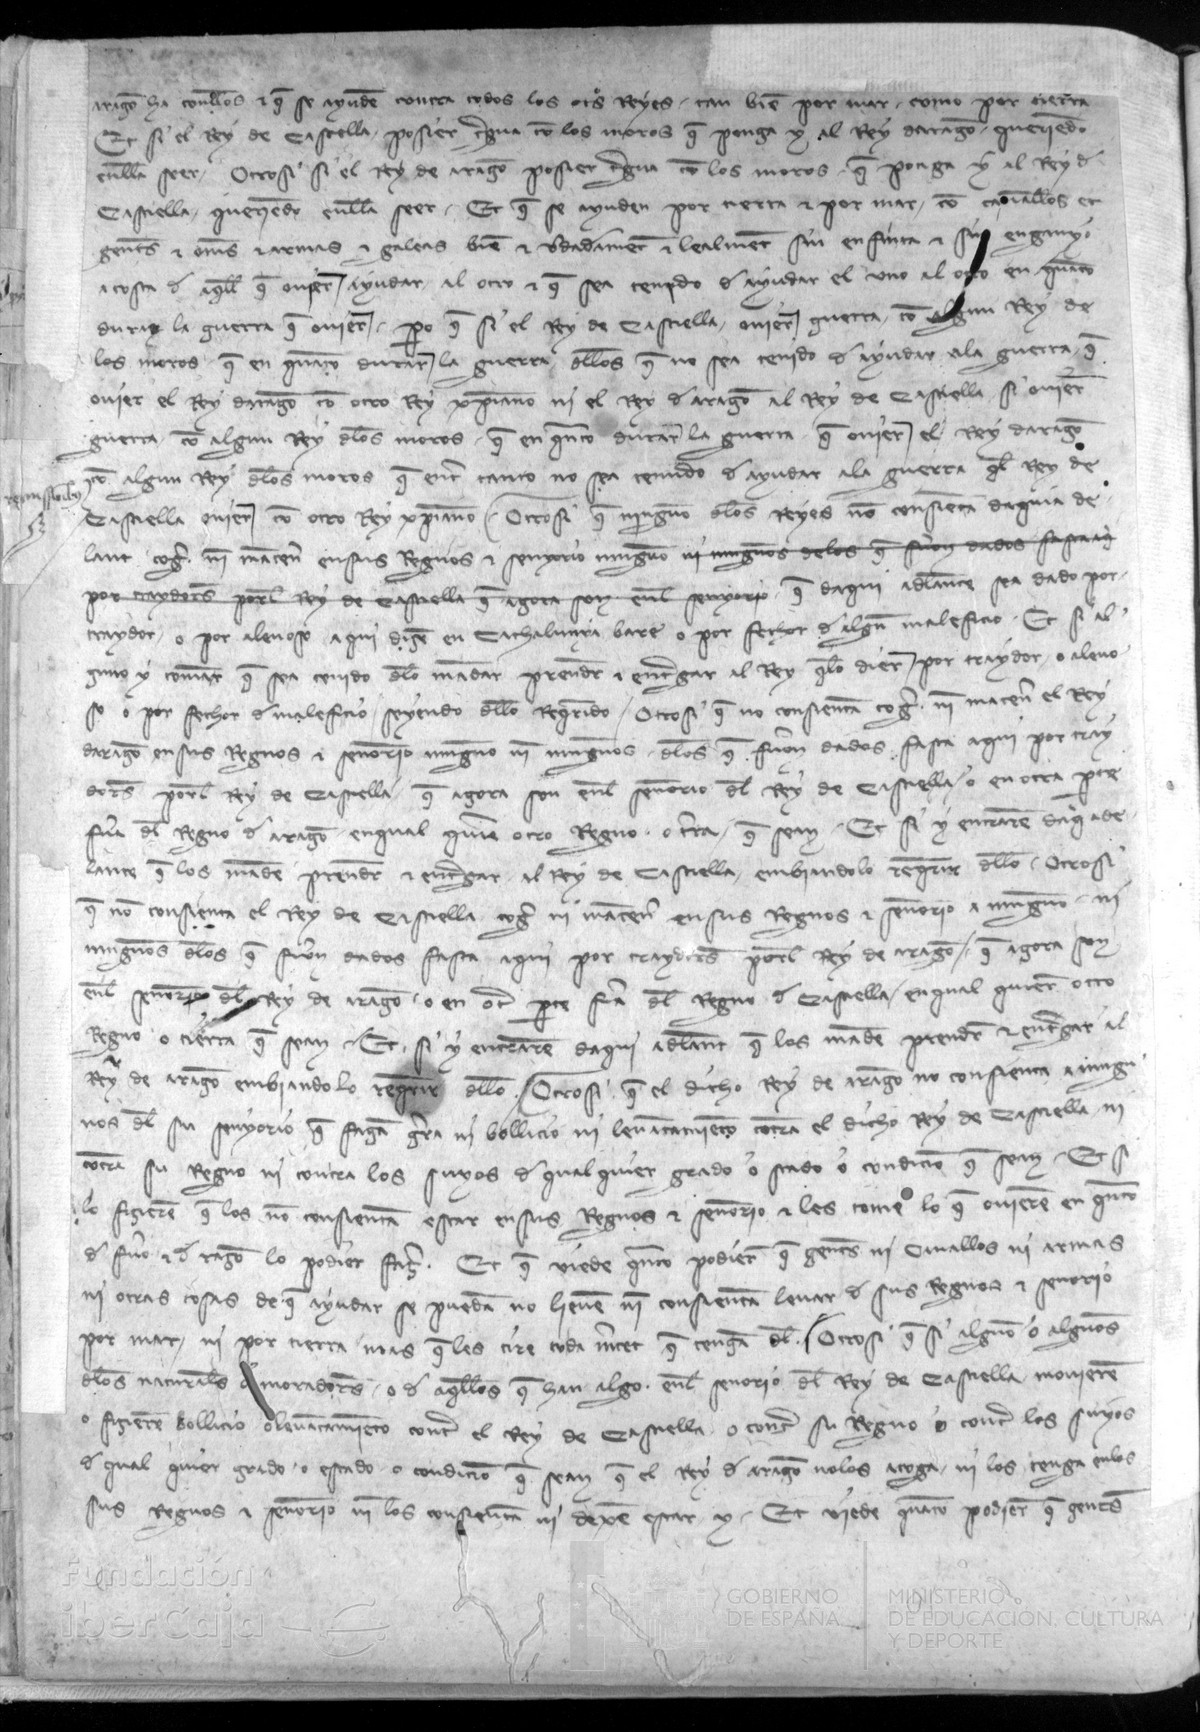 aragō ha conellos ⁊ q̄ se ayudē contra todos los otros Reyes. tan biē por mar. como por tierra
Et si el Rey de Castiella. posier tregua cō los moros q̄ ponga y al Rey daragō. queriēdo
enella seer. Otrosi si el Rey de aragō posier tregua cō los moros. q̄ ponga y al Rey d
Castiella. queriēdo enella seer. Et q̄ se ayuden por tierra ⁊ por mar. cō cauallos et
gentes ⁊ ōms ⁊ armas ⁊ galeas biē ⁊ vdadamēt ⁊ lealmēt sin enfinta ⁊ sin enganyo
a costa d aqll q̄ ouier ayudar. al otro ⁊ q̄ sea tenydo d ayudar el vno al otro en quāto
durar la guerra q̄ ouier. po q̄ si el Rey de Castiella. ouier guerra. cō algun Rey de
los moros. q̄ en quāto durar la guerra dllos q̄ no sea tenido d ayudar ala guerra. q̄
ouier el Rey daragō cō otro Rey xp̄iano ni el Rey d aragō al Rey de Castiella si ouier
guerra. cō algun Rey dlos moros. q̄ en qnto durar la guerra q̄ ouier el Rey daragō
cō algun Rey dlos moros q̄ ent tanto no sea tenudo d ayudar ala guerra ql Rey de
Castiella ouier cō otro Rey xp̄iano. Otrosi q̄ ninguno dlos Reyes nō consienta daquia de
lant coger. ni māten ensus Regnos ⁊ senyorio ninguno ni ningunos delos q̄ fuon dados fasta aqi
por traydors porl Rey de Castiella q̄ agora son enl senyorio. q̄ daqui adlante sea dado por
traydor. o por aleuoso aqui dizē en Cathalunya bare o por fechor d algū maleficio. Et si al
guno y entrar q̄ sea tenido dlo mādar prendr ⁊ entregar al Rey qlo dier por traydor. o aleuo
so o por fechor d maleficio. seyendo dllo Reqrido. Otrosi q̄ no consienta coger. ni māten el Rey
daragō ensus Regnos ⁊ senorio ninguno ni ningunos. dlos q̄ fuon dados fasta aqui por tray
dors porl Rey de Castiella. q̄ agora son enl senorio dl Rey de Castiella. o en otra pte
fuā dl Regno d aragō. enqual quiē otro Regno. o trra. q̄ sean. Et si y entrarē daqade
lante q̄ los māde prendr ⁊ entregar. al Rey de Castiella. embiandolo reqrir dllo. Otrosi
q̄ nō consienta el Rey de Castiella coger ni māten ensus Regnos ⁊ senorio a ninguno. ni
ningunos dlos q̄ fuon dados fasta aqui por traydors porl Rey de aragō. q̄ agora son
enl senorio dl Rey de aragō. o en otr pte fuā dl Regno d Castiella. enqual quier otro
Regno o tierra q̄ sean. Et. si y entrarē daqui adlant q̄ los māde prendr ⁊ entregar al
Rey de aragō embiandolo reqrir dllo. Otrosi q̄ el dicho Rey de aragō no consienta a ningu
nos dl su senyorio q̄ fagā grra ni bollicio ni leuātamiēto cōtra el dicho Rey de Castiella. ni
cōtra su Regno ni contra los suyos d qualquier grado o stado o condiciō q̄ sean. Et si
lo fizierē q̄ los nō consientā estar ensus Regnos ⁊ senorio ⁊ les tome lo q̄ ouierē en qnto
d fuo ⁊ d ragō lo podier fazer. Et q̄ viede qnto podier q̄ gents ni Cauallos ni armas
ni otras cosas de q̄ ayudar se puedā no lieuē ni consientā leuar d sus Regnos ⁊ senorio
por mar. ni por tierra mas q̄ les tire toda mcet q̄ tengā dl. Otrosi q̄ si alguno o algunos
dlos naturals o moradors. o d aqllos q̄ han algo. enl senorio dl Rey de Castiella. mouierē
o fizierē bollicio o leuātamiēto contr el Rey de Castiella. o contr su Regno o contr los suyos
d qual quier grado. o estado. o condiciō q̄ sean q̄ el Rey d aragō nolos acoga. ni los tenga enlos
sus Regnos ⁊ senorio ni los consienta ni dexe estar y. Et viede quāto podier q̄ gents
Fundación
iberCaja
GOBIERNO
DE ESPAÑA
MINISTERIO
DE EDUCACIÓN, CULTURA
Y DEPORTE